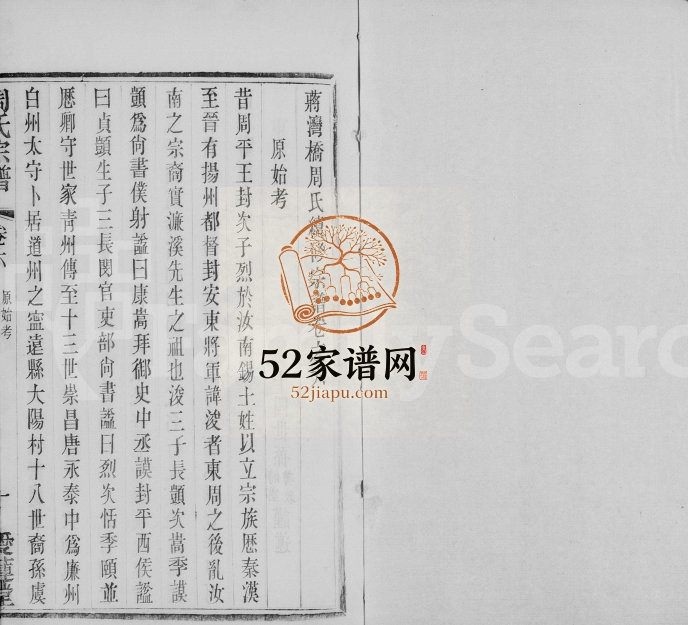 蔣灣橋周氏續修宗譜卷六
原始考
昔周平王封次子烈於汝南錫土姓以立宗族歷秦漢
至晉有揚州都督封安東將軍諱浚者東周之後亂汝
南之宗裔實濂溪先生之祖也浚三子長顗次嵩季謨
顗爲尚書僕射諡曰康嵩拜御史中丞謨封平西侯諡
曰貞顗生子三長閔官吏部尚書諡曰烈次恬季頤並
歷卿守世家靑州傳至十三世崇昌唐永泰中爲廉州
白州太守卜居道州之寧遠縣大陽村十八世裔孫虞
周氏宗譜
卷六
原始考
一
愛蓮堂
52家谱网
52jiapu.com
Search